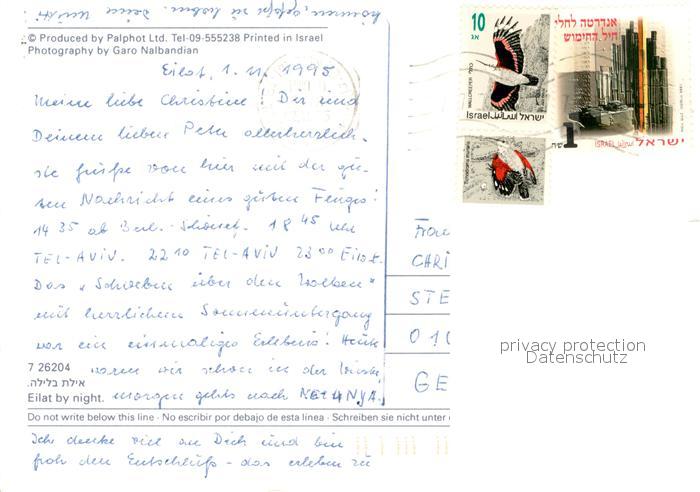 können, gehabt zu haben. Deine
© Produced by Palphot Ltd. Tel-09-555238 Printed in Israel
Photography by Garo Nalbandian
Eilat, 1. 11. 1995
Meine liebe Christine! Dir und
Deinem lieben Peter allerherzlich-
ste Grüße von hier mit der gu-
ten Nachricht eines guten Fluges!
14 35 ab Berl.-Schönef. 18 45 Uhr
TEL-AVIV. 22 10 TEL-AVIV 23 00 Eilat.
Das „Schweben über den Wolken"
mit herrlichem Sonnenuntergang
war ein einmaliges Erlebnis! Heute
waren wir schon in der Wüste,
morgen gehts nach NETANYA.
7 26204
אילת בלילה.
Eilat by night.
Do not write below this line · No escribir por debajo de esta línea · Schreiben sie nicht unter
Ich denke viel an Dich und bin
froh den Entschluß - das erleben zu
10
אג
WALLCREEPER
ישראל
ISRAEL
אנדרטה לחללי
חיל החימוש
1
ISRAEL ישראל
Frau
CARI
STE
010
GE
privacy protection
Datenschutz